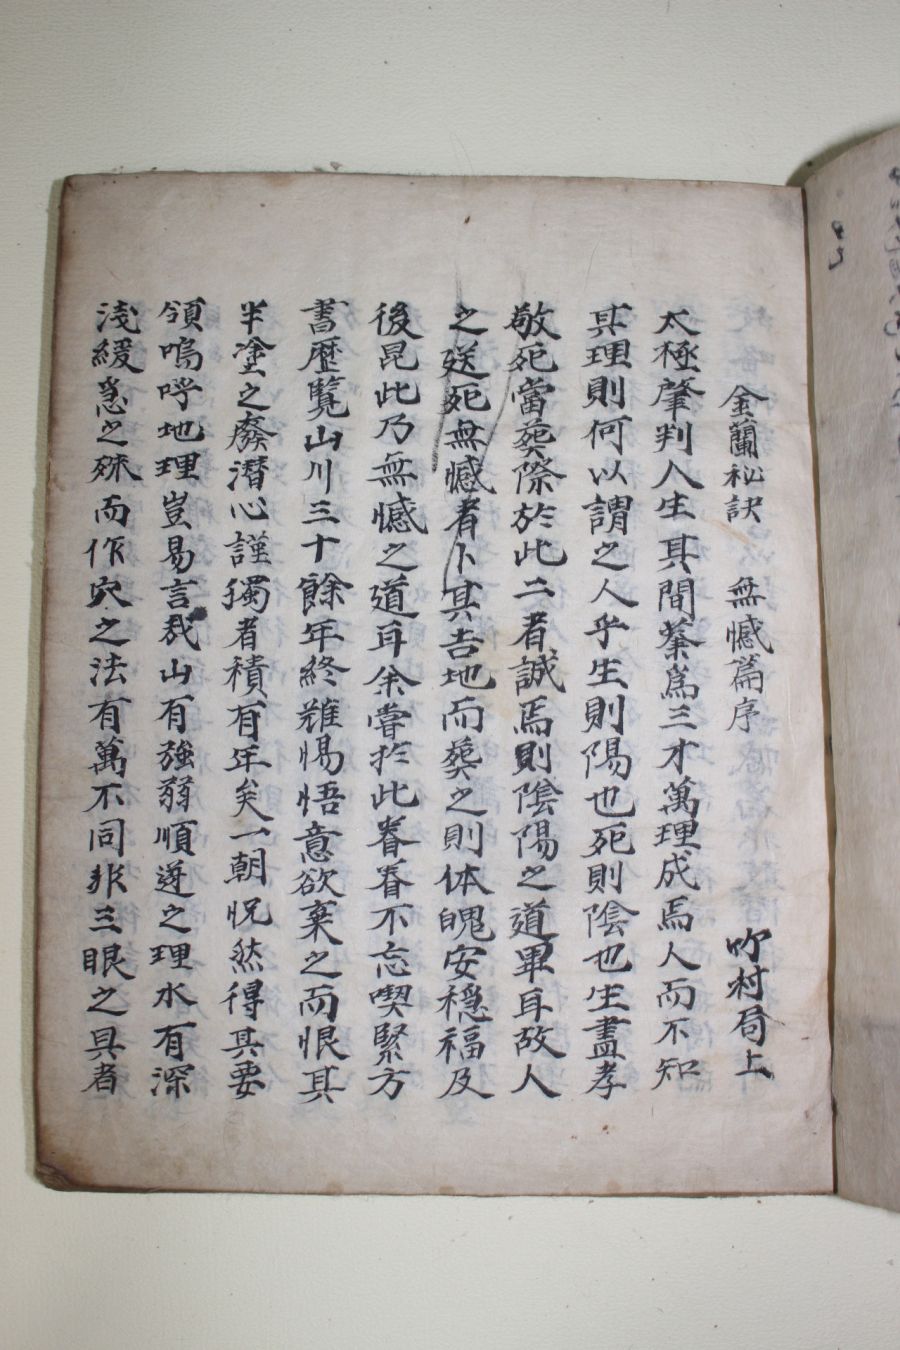 金蘭秘訣 無憾篇序 吵村局上
太極肇判人生其間叅爲三才萬理成焉人而不知
其理則何以謂之人乎生則陽也死則陰也生盡孝
敬死當葬際於此二者誠焉則陰陽之道畢耳故人
之送死無憾者卜其吉地而葬之則体魄安穩福及
後昆此乃無憾之道耳余嘗於此眷眷不忘喫緊方
書歷覽山川三十餘年終難惕悟意欲棄之而恨其
半塗之廢潜心謹獨者積有年矣一朝怳然得其要
領嗚呼地理豈易言哉山有強弱順逆之理水有深
淺緩急之殊而作穴之法有萬不同非三眼之具者